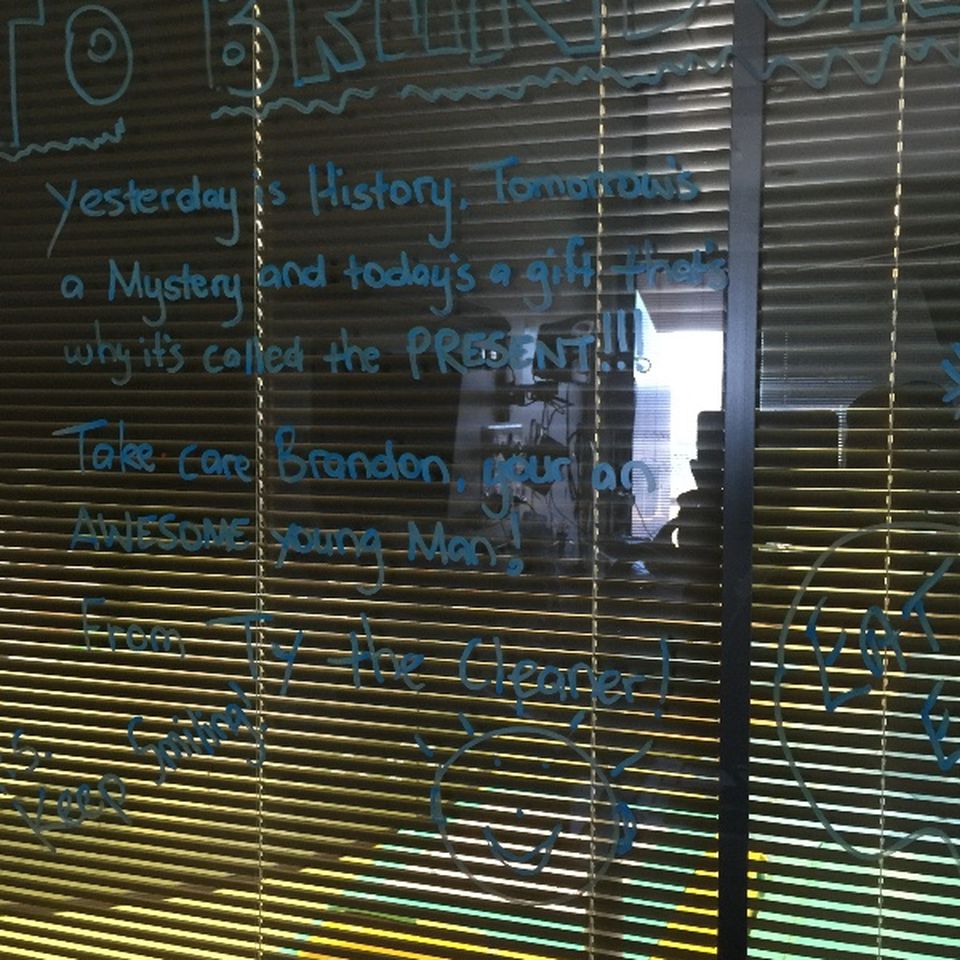 TO BRANDON
Yesterday is History, Tomorrow's
a Mystery and today's a gift that's
why it's called the PRESENT!!!
Take care Brandon, your an
AWESOME young Man!
From Ty the Cleaner!
P.S.
Keep Smiling!
EAT